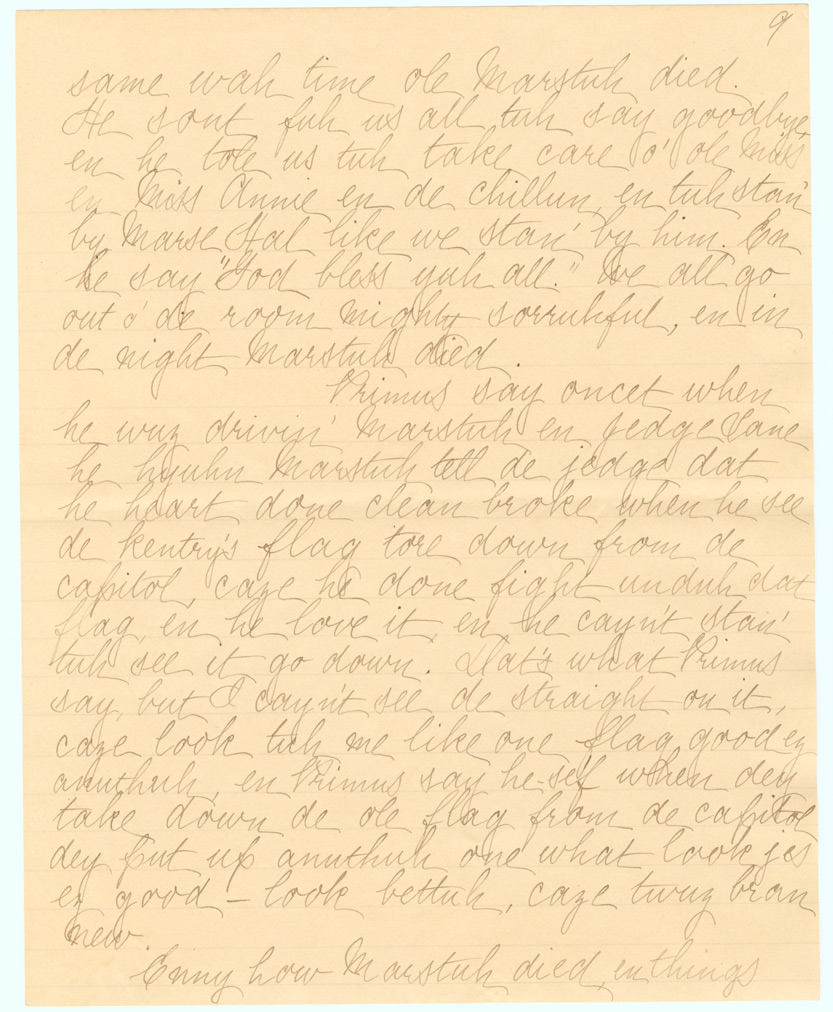 9
same wah time ole Marstuh died.
He sont fuh us all tuh say goodbye,
en he tole us tuh take care o' ole Miss
en Miss Annie en de chillun, en tuh stan'
by Marse Hal like we stan' by him. En
he say "God bless yuh all." We all go
out o' de room mighty sorruhful, en in
de night Marstuh died.
Primus say oncet when
he wuz drivin' Marstuh en Jedge Lane
he hyuhn Marstuh tell de jedge dat
he heart done clean broke when he see
de kentry's flag tore down from de
capitol, caze he done fight unduh dat
flag, en he love it, en he cayn't stan'
tuh see it go down. Dat's what Primus
say, but I cayn't see de straight on it,
caze look tuh me like one flag good ez
anuthuh, en Primus say he-se'f when dey
take down de ole flag from de capitol
dey put up anuthuh one what look jes
ez good – look bettuh, caze twuz bran
new.
Enny how Marstuh died, en things